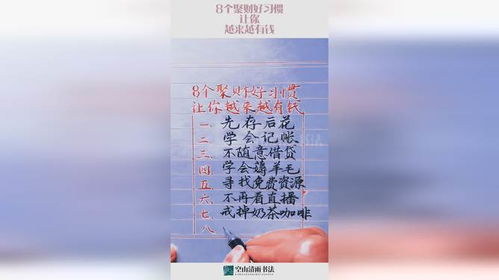 8个聚财好习惯
让你
越来越有钱
8个聚财好习惯
让你越来越有钱
一、先存后花
二、学会记帐
三、不随意借贷
四、学会薅羊毛
五、寻找免费资源
六、不再看直播
七、戒掉奶茶咖啡
八、
空山清雨书法